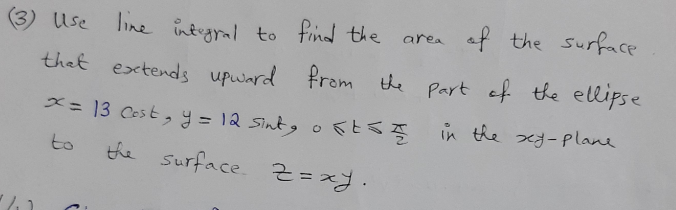 (3) Use line integral to find the area of the surface
that extends upward from the part of the ellipse
x = 13 Cost, y = 12 Sint, 0 ≤ t ≤ π/2 in the xy-plane
to the surface z = xy.